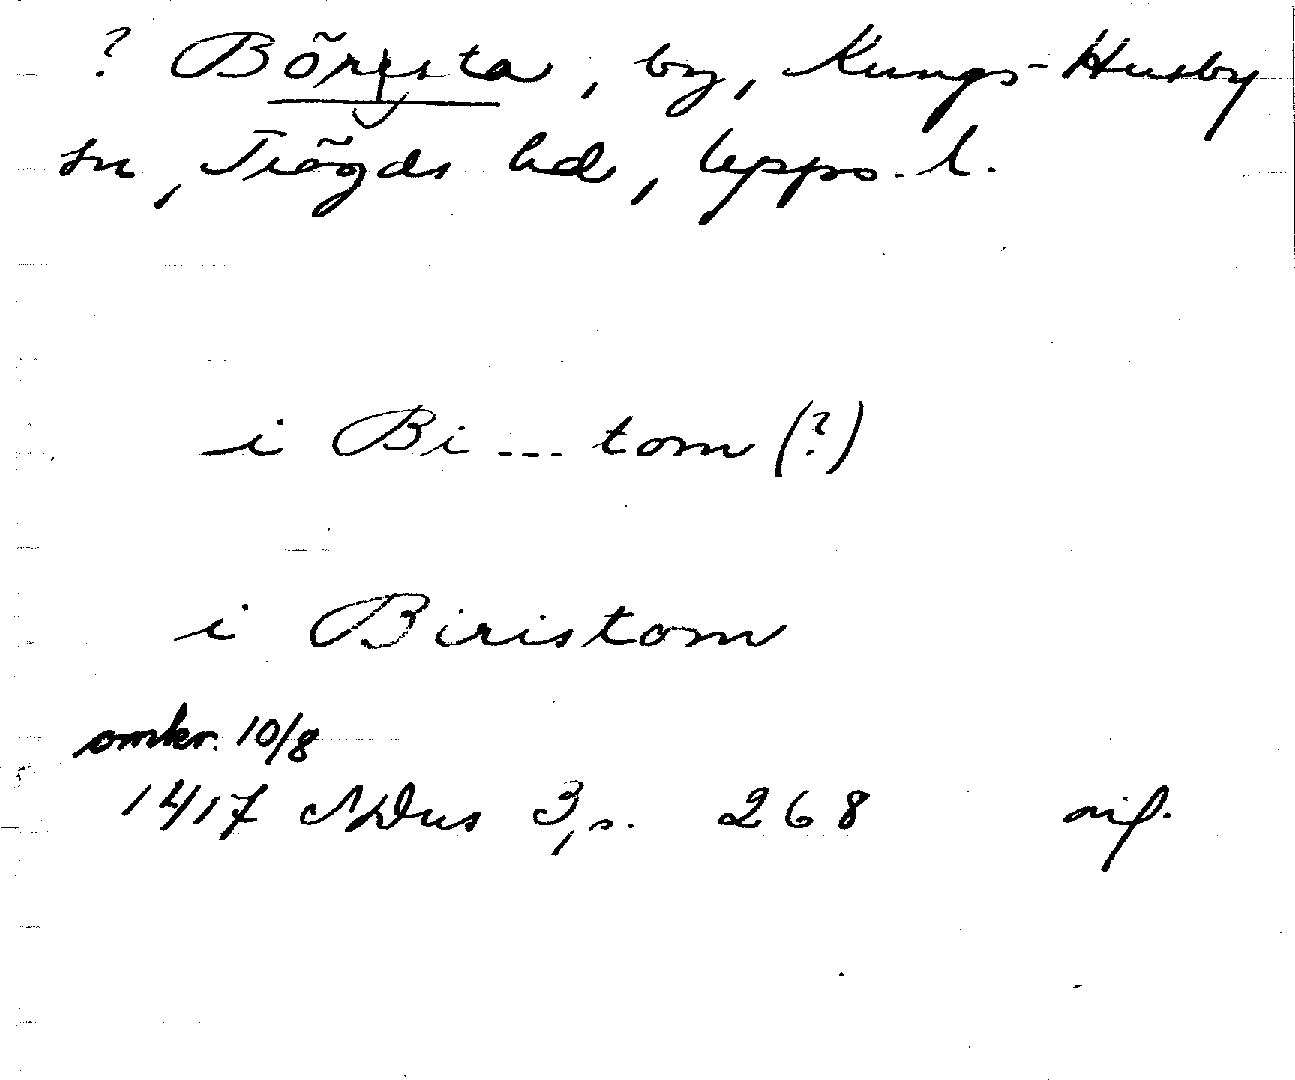 ? Börsta, by, Kungs-Husby
sn, Trögds hd, Upps. l.
i Bi --- tom (?)
i Biristom
omkr. 10/8
1417 NDus 3, s. 268